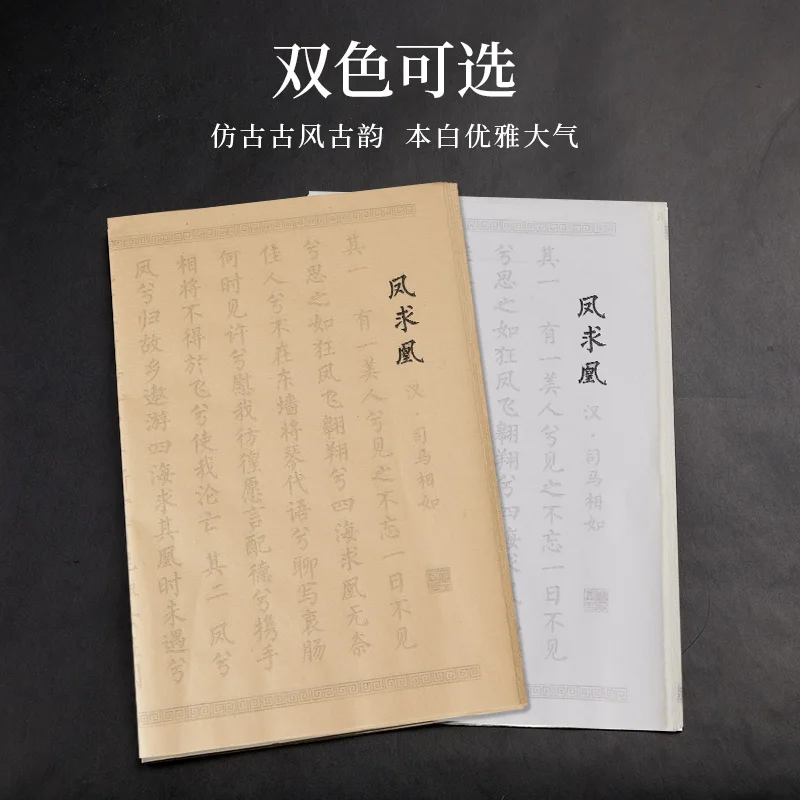 双色可选
仿古古风古韵 本白优雅大气
凤求凰
汉·司马相如
其一 有一美人兮见之不忘一日不见
兮思之如狂凤飞翱翔兮四海求凰无奈
佳人兮不在东墙将琴代语兮聊写衷肠
何时见许兮慰我彷徨愿言配德兮携手
相将不得於飞兮使我沦亡 其二 凤兮
凤兮归故乡遨游四海求其凰时未遇兮
凤求凰
汉·司马相如
其一 有一美人兮见之不忘一日不见
兮思之如狂凤飞翱翔兮四海求